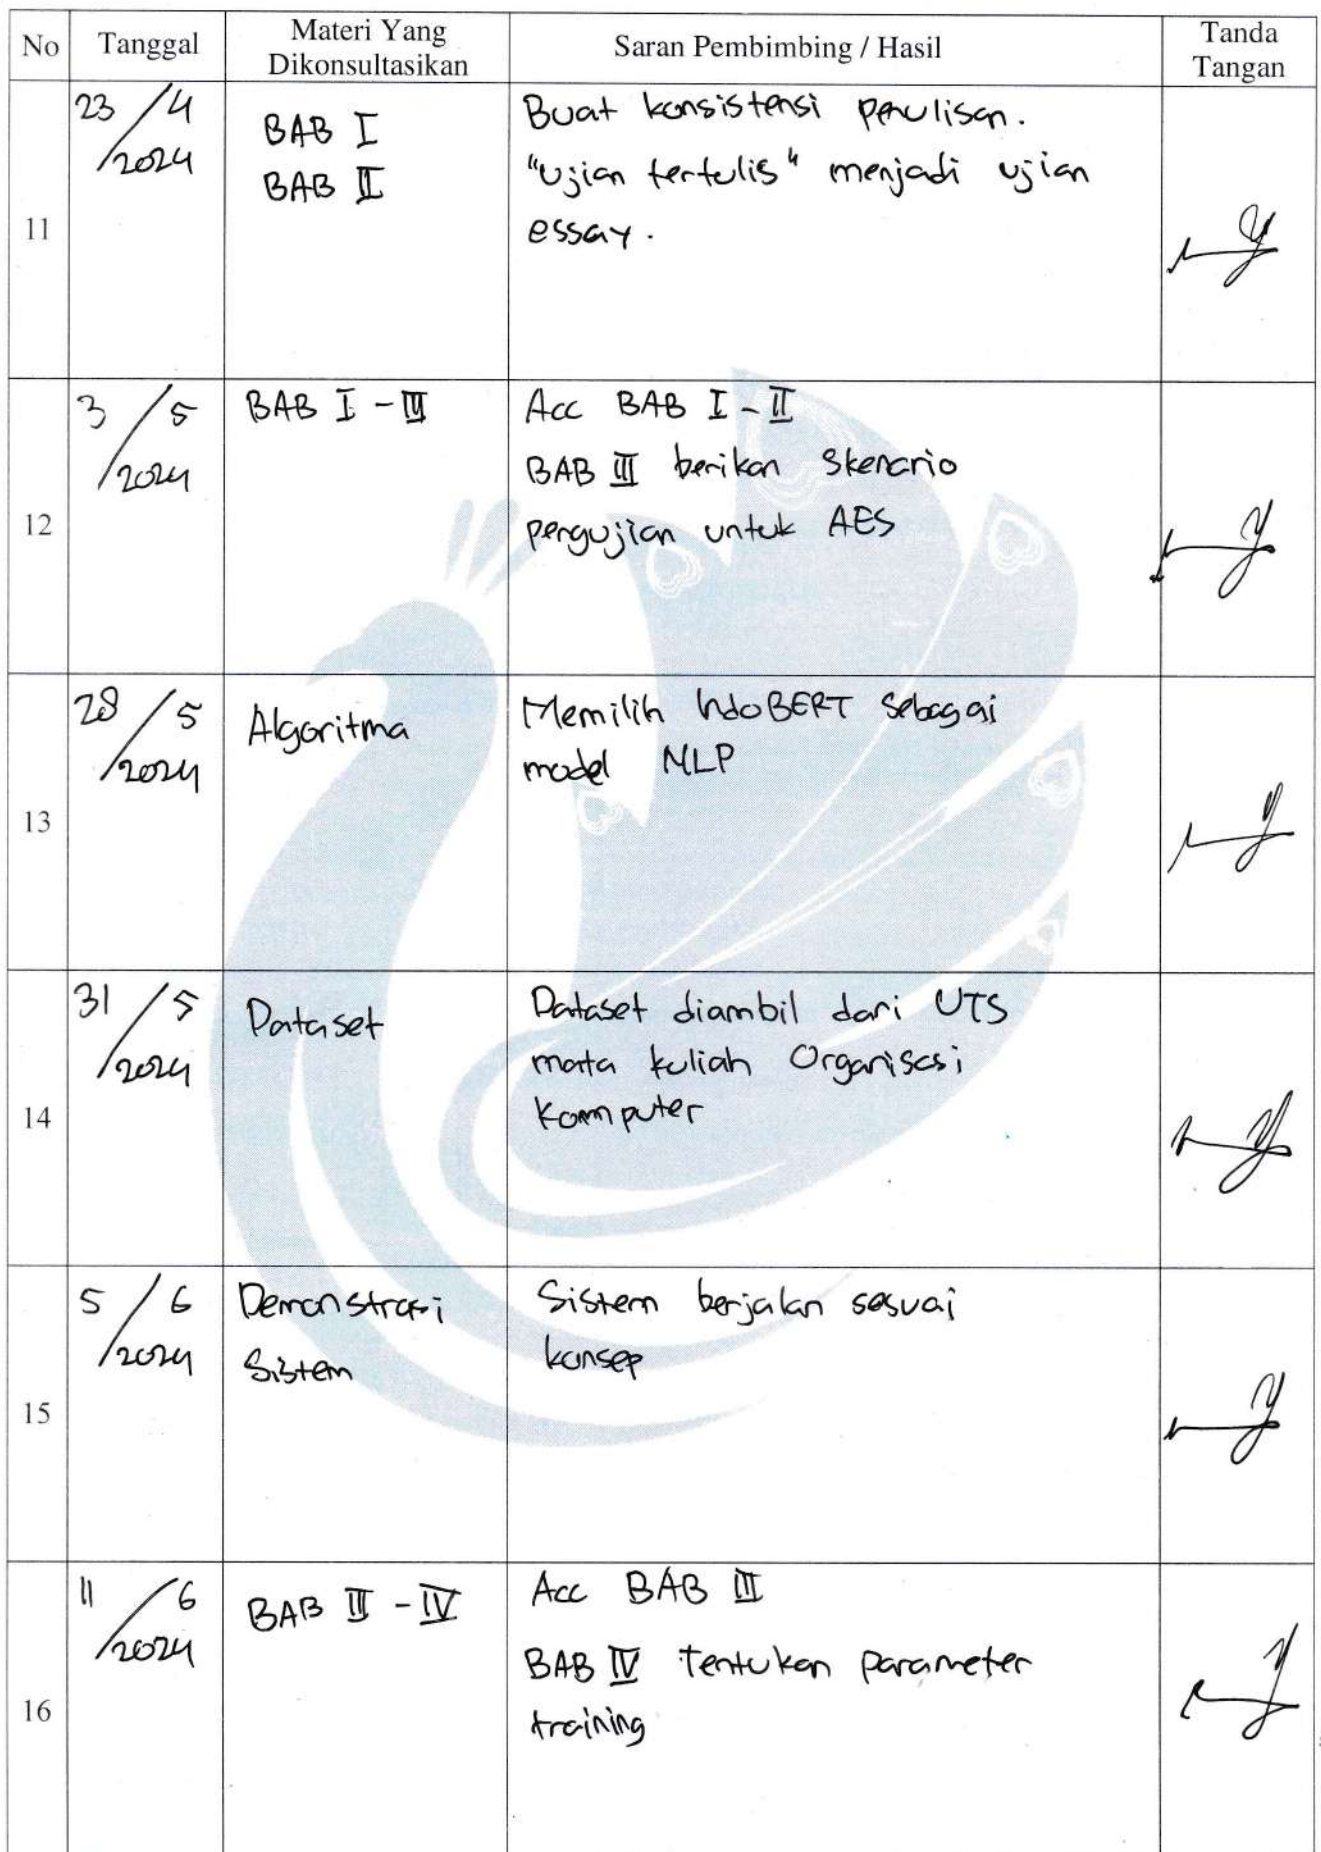 No Tanggal Materi Yang Dikonsultasikan Saran Pembimbing / Hasil Tanda Tangan
11
23/4
2024
BAB I
BAB II
Buat konsistensi penulisan.
"Ujian tertulis" menjadi ujian
essay.
12
3/5
2024
BAB I - III
Acc BAB I - II
BAB III berikan Skenario
pengujian untuk AES
13
28/5
2024
Algoritma
Memilih IndoBERT sebagai
model NLP
14
31/5
2024
Dataset
Dataset diambil dari UTS
mata kuliah Organisasi
Komputer
15
5/6
2024
Demonstrasi
Sistem
Sistem berjalan sesuai
konsep
16
11/6
2024
BAB III - IV
Acc BAB III
BAB IV tentukan parameter
training